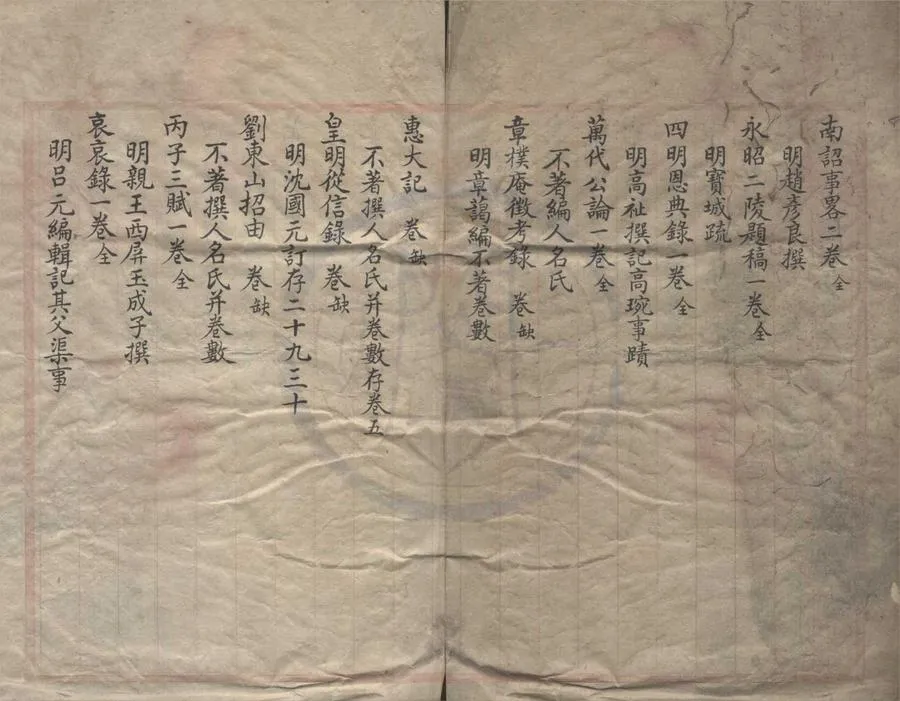 南詔事畧二卷 全
明趙彥良撰
永昭二陵題稿一卷 全
明寶城疏
四明恩典錄一卷 全
明高祉撰記高琬事蹟
萬代公論一卷 全
不著編人名氏
章樸庵徵考錄 卷缺
明章藹編不著卷數
惠大記 卷缺
不著撰人名氏并卷數存卷五
皇明從信錄 卷缺
明沈國元訂存二十九三十
劉東山招由 卷缺
不著撰人名氏并卷數
丙子三賦一卷 全
明親王西屏玉成子撰
哀哀錄一卷 全
明呂元編輯記其父渠事